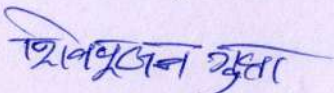 शिवपूजन गुप्ता